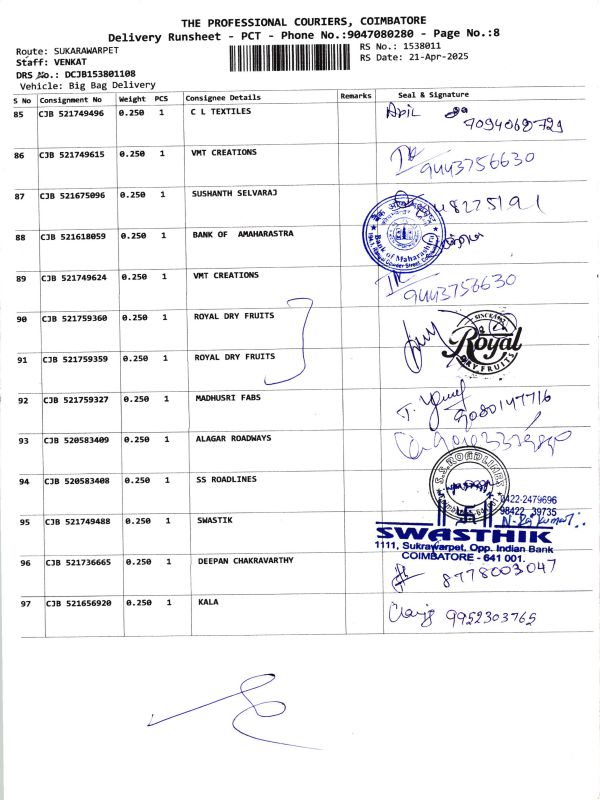 THE PROFESSIONAL COURIERS, COIMBATORE
Delivery Runsheet - PCT - Phone No.:9047080280 - Page No.:8
Route: SUKARAWARPET
RS No.: 1538011
Staff: VENKAT
RS Date: 21-Apr-2025
DRS No.: DCJB153801108
Vehicle: Big Bag Delivery
S No Consignment No Weight PCS Consignee Details Remarks Seal & Signature
85 CJB 521749496 0.250 1 C L TEXTILES
86 CJB 521749615 0.250 1 VMT CREATIONS 9443756630
87 CJB 521675096 0.250 1 SUSHANTH SELVARAJ
88 CJB 521618059 0.250 1 BANK OF AMAHARASTRA
Bank of Maharashtra
89 CJB 521749624 0.250 1 VMT CREATIONS 9443756630
90 CJB 521759360 0.250 1 ROYAL DRY FRUITS
Royal
DRY FRUITS
91 CJB 521759359 0.250 1 ROYAL DRY FRUITS
92 CJB 521759327 0.250 1 MADHUSRI FABS 9080147716
93 CJB 520583409 0.250 1 ALAGAR ROADWAYS
94 CJB 520583408 0.250 1 SS ROADLINES
S.S. ROADLINES
0422-2479696
98422 39735
95 CJB 521749488 0.250 1 SWASTIK N. Raj kumar
SWASTHIK
1111, Sukrawarpet, Opp. Indian Bank
COIMBATORE - 641 001.
96 CJB 521736665 0.250 1 DEEPAN CHAKRAVARTHY 8778003047
97 CJB 521656920 0.250 1 KALA 9952303765